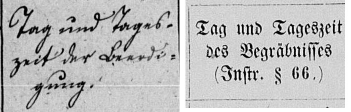 Tag und Tages-
zeit der Beerdi-
gung.
Tag und Tageszeit
des Begräbnisses
(Instr. § 66.)